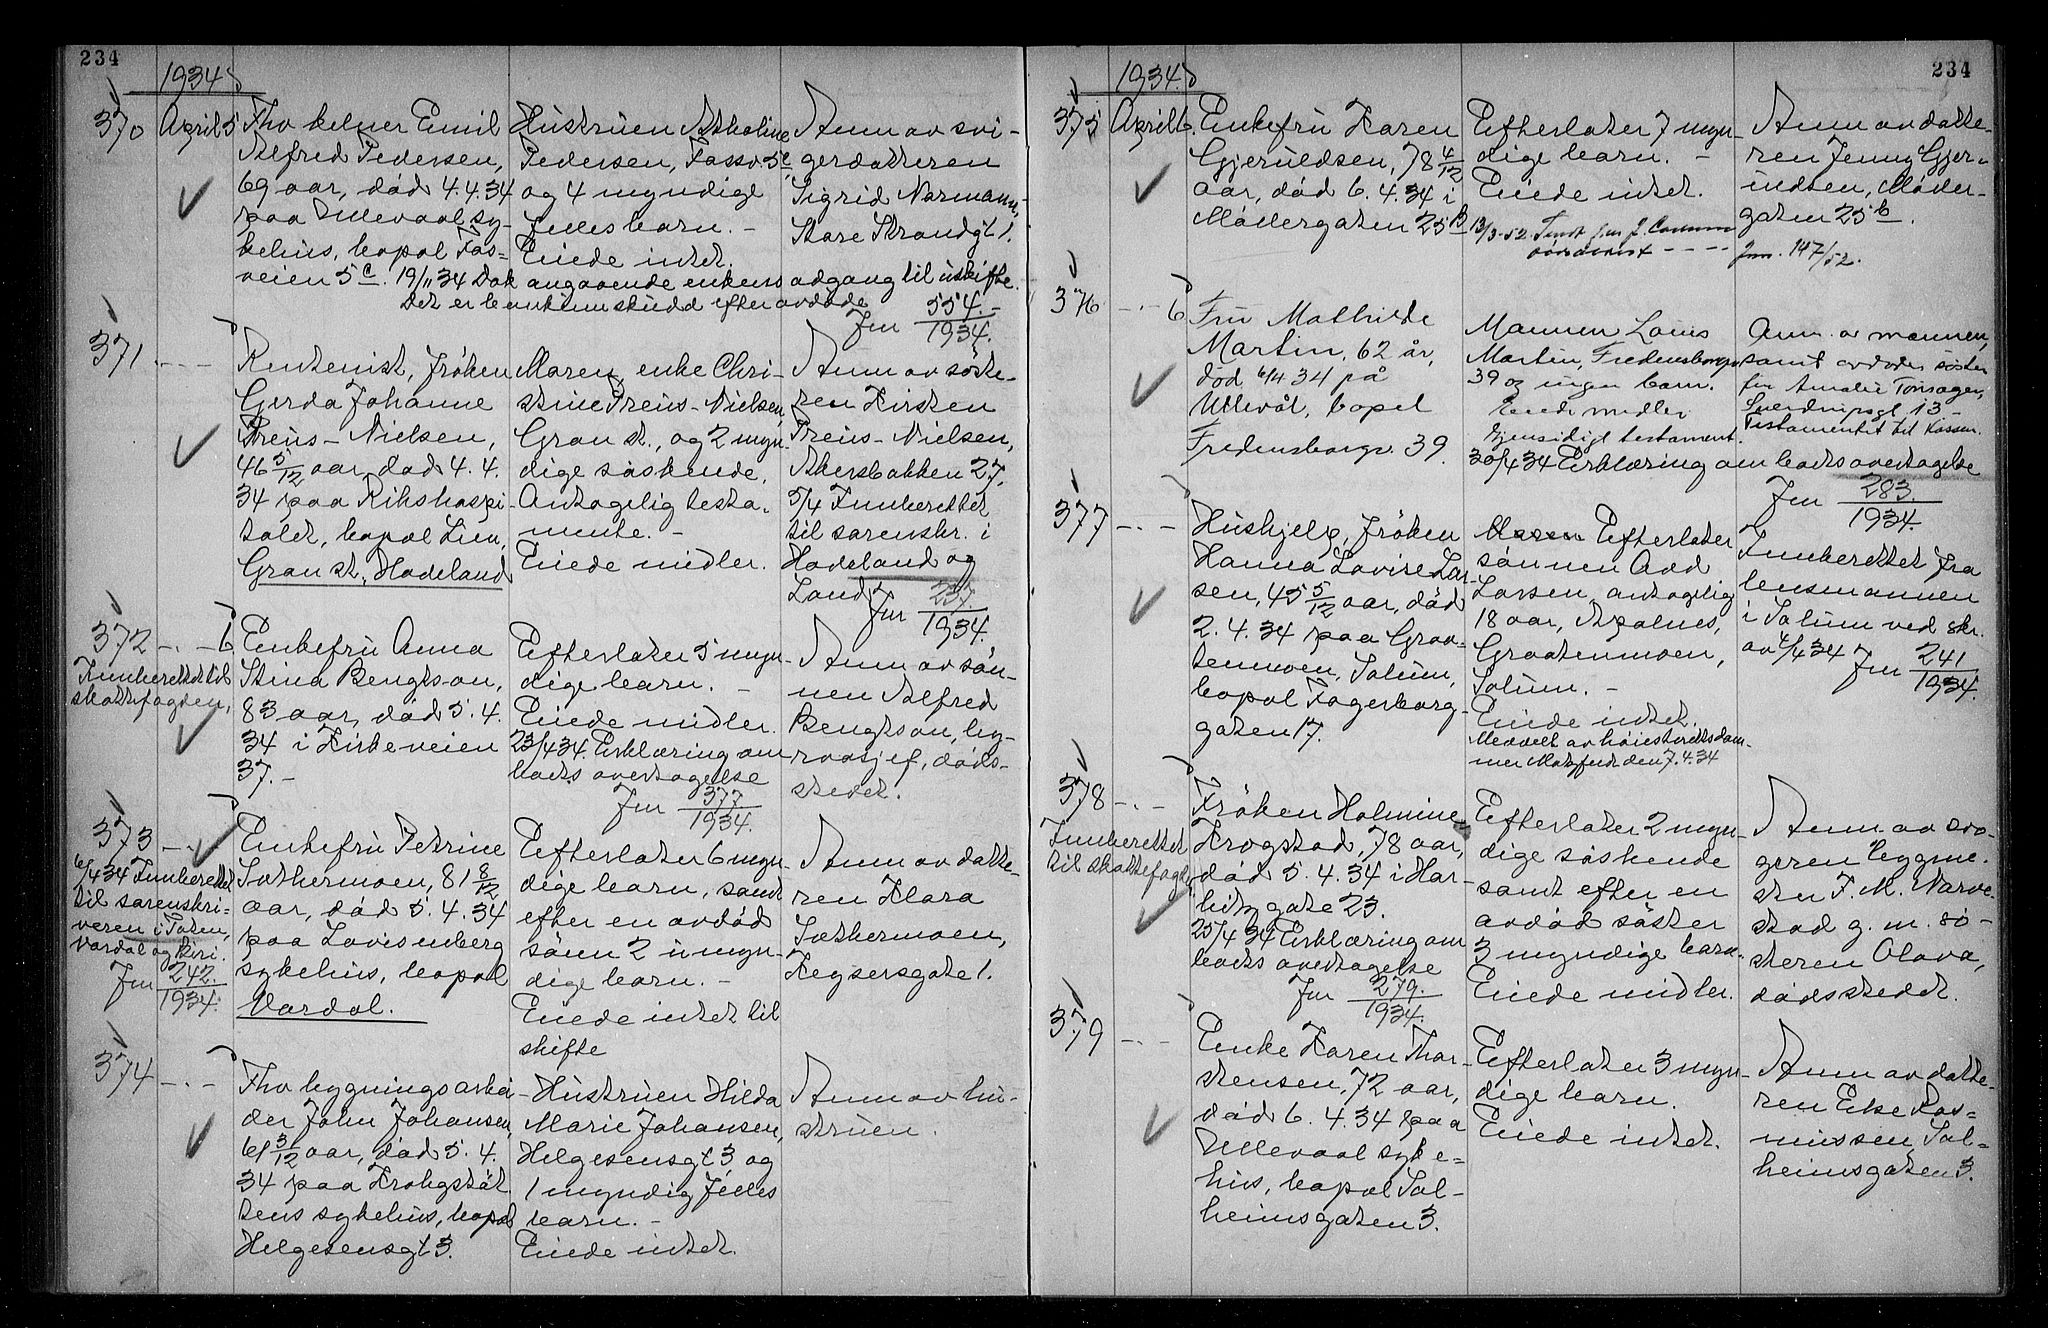 234
1934.
370
April 5
Fhv kelner Emil
Alfred Pedersen,
69 aar, död 4.4.34
paa Ullevaal sy-
kehus, bopæl Fas-
veien 5 c.
Hustruen
Pedersen, Fasv 5 c,
og 4 myndige
felles barn. -
Eiede intet.
Anm av svi-
gerdatteren
Sigrid Normann,
Store Strandgt 1.
19/11 34 Dok angaaende enkens adgang til uskifte.
Det er bankinnskudd efter avdøde
Jnr 554.-
1934.
371
- . - -
Rentenist, fröken
Gerda Johanne
Preus-Nielsen,
46 5/12 aar, död 4.4.
34 paa Rikshospi-
talet, bopæl Lien,
Gran st, Hadeland
Moren, enke Chri-
stine Preus-Nielsen,
Gran st., og 2 myn-
dige söskende.
Antagelig testa-
mente. -
Eiede midler.
Anm av söste-
ren Kirsten
Preus-Nielsen,
Akersbakken 27,
5/4 Innberettet
til sorenskr. i
Hadeland og
Land Jnr 237.
1934.
372
- . - 6
Innberettet til
skattefogden,
Enkefru Anna
Stina Bengtson,
83 aar, död 5.4.
34 i Kirkeveien
37. -
Efterlater 5 myn-
dige barn. -
Eiede midler.
23/4 34 Erklæring om
boets overtagelse
Jnr 377
1934.
Anm av sön-
nen Alfred
Bengtson, by-
raasjef, döds-
stedet.
373
- . -
6/4 34 Innberettet
til sorenskri-
veren i Toten,
Vardal og Biri.
Jnr 242.
1934.
Enkefru Petrine
Sæthermoen, 81 8/12
aar, död 5.4.34
paa Lovisenberg
sykehus, bopæl
Vardal.
Efterlater 6 myn-
dige barn, samt
efter en avdöd
sönn 2 umyn-
dige barn. -
Eiede intet til
skifte
Anm av datte-
ren Klara
Sæthermoen,
Keysersgate 1.
374
- . -
Fhv bygningsarbei-
der John Johansen,
61 3/12 aar, död 5.4.
34 paa Krohgstöt-
tens sykehus, bopæl
Helgesensgt 3.
Hustruen Hilda
Marie Johansen,
Helgesensgt 3 og
1 myndig felles
barn. -
Eiede intet.
Anm av hu-
struen.
234
1934.
375
April 6.
Enkefru Karen
Gjeruldsen, 78 4/12
aar, död 6.4.34 i
Möllergaten 25 B
Efterlater 7 myn-
dige barn. -
Eiede intet.
13/3-52.
Jnr. 147/52.
Anm av datte-
ren Jenny Gjer-
uldsen, Möller-
gaten 25 b.
376
- . - 6
Fru Mathilde
Martin, 62 år,
död 6/4 34 på
Ullevål, bopel
Fredensborgv. 39.
Mannen Louis
Martin, Fredensborgv
39 og ingen barn.
Eiede midler.
Gjensidigt testament.
30/4 34 Erklæring om boets overtagelse
Anm. av mannen,
samt avdödes söster
fru Amalie Tonsager,
Sverdrupsgt 13 -
Testamentet til kassen.
Jnr 283.
1934.
377
- . -
Hushjelp, fröken
Hanna Lovise Lar-
sen, 45 5/12 aar, död
2.4.34 paa Graa-
tenmoen, Solum,
bopæl Fagerborg-
gaten 17.
Efterlater
sönnen Odd
Larsen, antagelig
18 aar,
Graatenmoen,
Solum. -
Eiede intet.
Meddelt av höiesterettsdom-
mer den 7.4.34
Innberettet fra
lensmannen
i Solum ved skr.
av 4/4 34 Jnr 241
1934.
378
- . -
Innberettet
til skattefogd.
Fröken Holmine
Krogstad, 78 aar,
död 5.4.34 i Har-
bitz gate 23.
25/4 34 Erklæring om
boets overtagelse
Jnr 279.
1934.
Efterlater 2 myn-
dige söskende
samt efter en
avdöd söster
3 myndige barn.
Eiede midler.
Anm av svo-
geren byggme-
ster F. M. Narve-
stad g. m. sö-
steren Olava,
dödsstedet.
379
- . -
Enke Karen Thor-
stensen, 72 aar,
död 6.4.34 paa
Ullevaal syke-
hus, bopæl Sol-
heimsgaten 3.
Efterlater 3 myn-
dige barn.
Eiede intet.
Anm av datte-
ren Else Ras-
mussen, Sol-
heimsgaten 3.